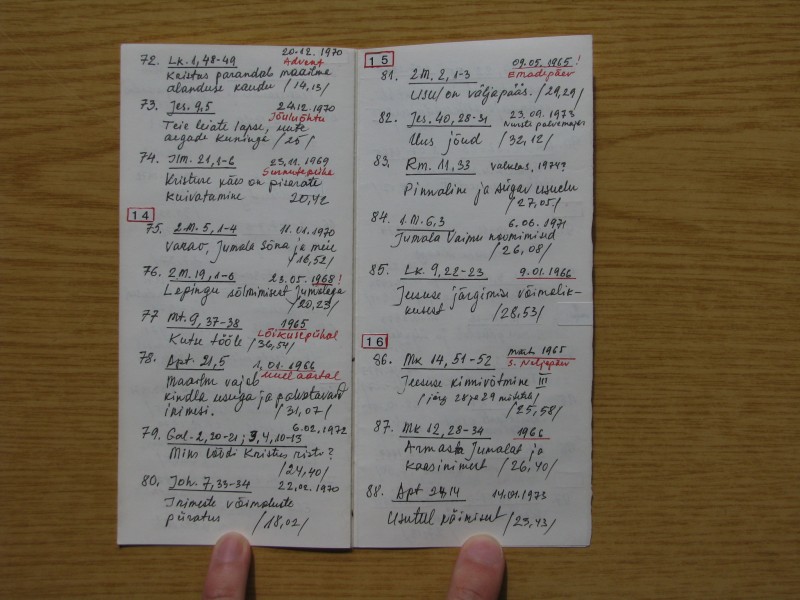 20.12.1970
72. Lk. 1, 48-49 Advent
Kristus parandab maailma
alanduse kaudu /14,13/
73. Jes. 9,5 24.12.1970
Jõuluõhtu
Teie leiate lapse, uute
aegade kuninga /25/
74. Ilm. 21,1-6 23.11.1969
Surnutepüha
Kristuse käes on pisarate
kuivatamine 20,42
14
75. 2 M. 5, 1-4 11.01.1970
Vaarao, Jumala Sõna ja meie
/16,52/
76. 2 M. 19, 1-6 23.05.1968!
Lepingu sõlmimisest Jumalaga
/20,23/
77 Mt. 9, 37-38 1965
Lõikusepühal
Kutse tööle /36,54/
78. Apt. 21,5 1.01.1966
uuel aastal
Maailm vajab
kindla usuga ja palvetavaid
inimesi. /31,07/
6.02.1972
79. Gal. 2, 20-21; 3, 4, 10-13
Miks löödi Kristus risti?
/24,40/
80. Joh. 7, 33-34 22.02.1970
Inimeste võimaluste
piiratus /18,02/
15
09.05.1965!
81. 2 M. 2, 1-3 Emadepäev
Usul on väljapääs. /29,29/
82. Jes. 40, 28-31 23.09.1973
Uus jõud /32,12/
83. Rm. 11, 33 1974?
Pinnaline ja sügav usuelu
/27,05/
84. 1 M. 6,3 6.06.1971
Jumala Vaimu noomimised
/26,08/
85. Lk. 9, 22-23 9.01.1966
Jeesuse järgimise võimalik-
kusest /28,53/
16
86. Mk 14, 51-52 märts 1965
3. Neljapäev
Jeesuse kinnivõtmine III
/järg 28 ja 29 mõtetele/
/25,58/
87. Mk 12, 28-34 1966
Armasta Jumalat ja
kaasinimest /26,40/
88. Apt 24,14 14.01.1973
Usutul võimisest /23,43/